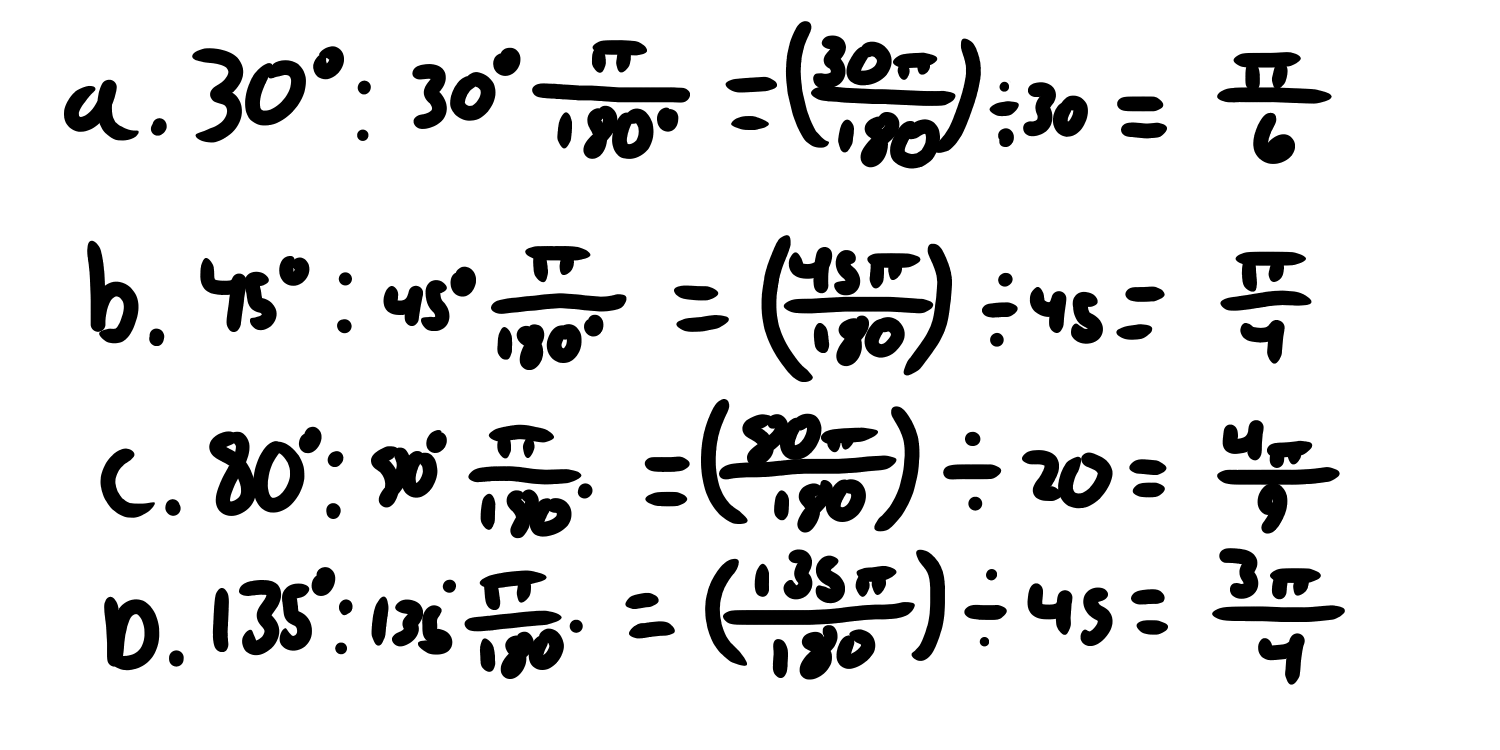 a. 30° : 30° π/180° = (30π/180) ÷ 30 = π/6
b. 45° : 45° π/180° = (45π/180) ÷ 45 = π/4
c. 80° : 80° π/180° = (80π/180) ÷ 20 = 4π/9
D. 135° : 135° π/180° = (135π/180) ÷ 45 = 3π/4